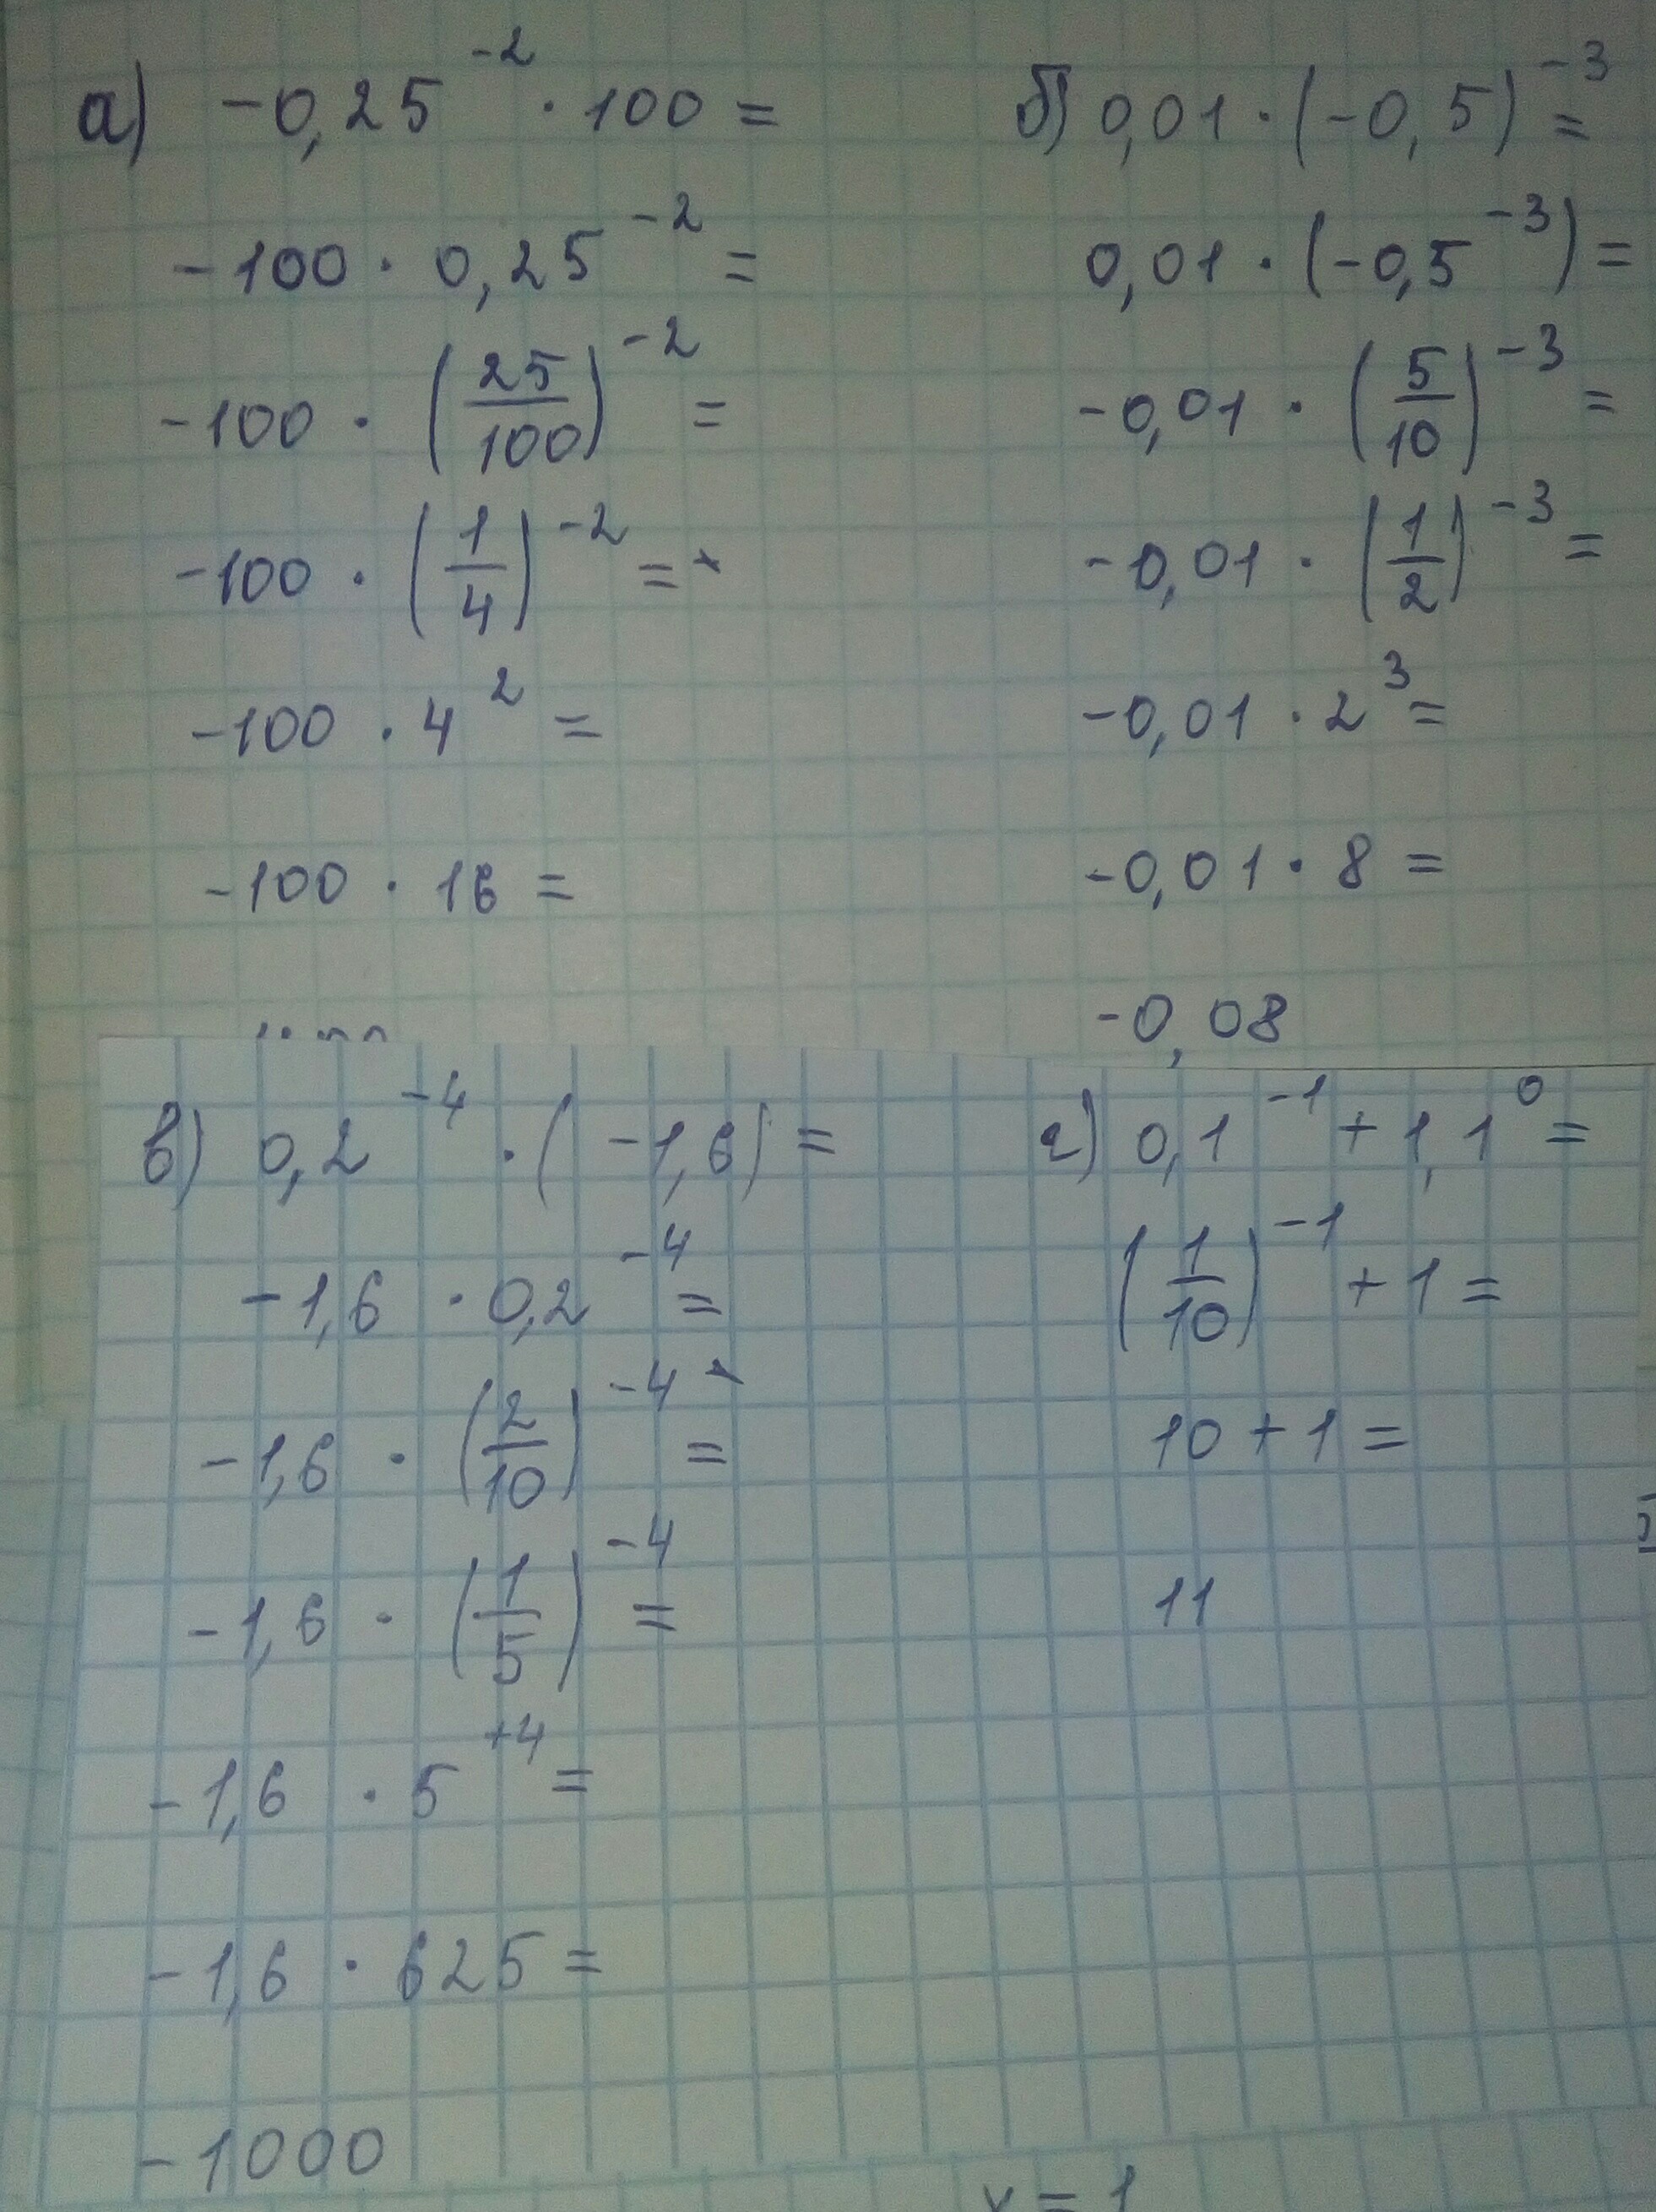 а) -0,25^-2 · 100 =
-100 · 0,25^-2 =
-100 · (25/100)^-2 =
-100 · (1/4)^-2 =
-100 · 4^2 =
-100 · 16 =
б) 0,01 · (-0,5)^-3 =
0,01 · (-0,5^-3) =
-0,01 · (5/10)^-3 =
-0,01 · (1/2)^-3 =
-0,01 · 2^3 =
-0,01 · 8 =
-0,08
в) 0,2^-4 · (-1,6) =
-1,6 · 0,2^-4 =
-1,6 · (2/10)^-4 =
-1,6 · (1/5)^-4 =
-1,6 · 5^+4 =
-1,6 · 625 =
-1000
г) 0,1^-1 + 1,1^0 =
(1/10)^-1 + 1 =
10 + 1 =
11